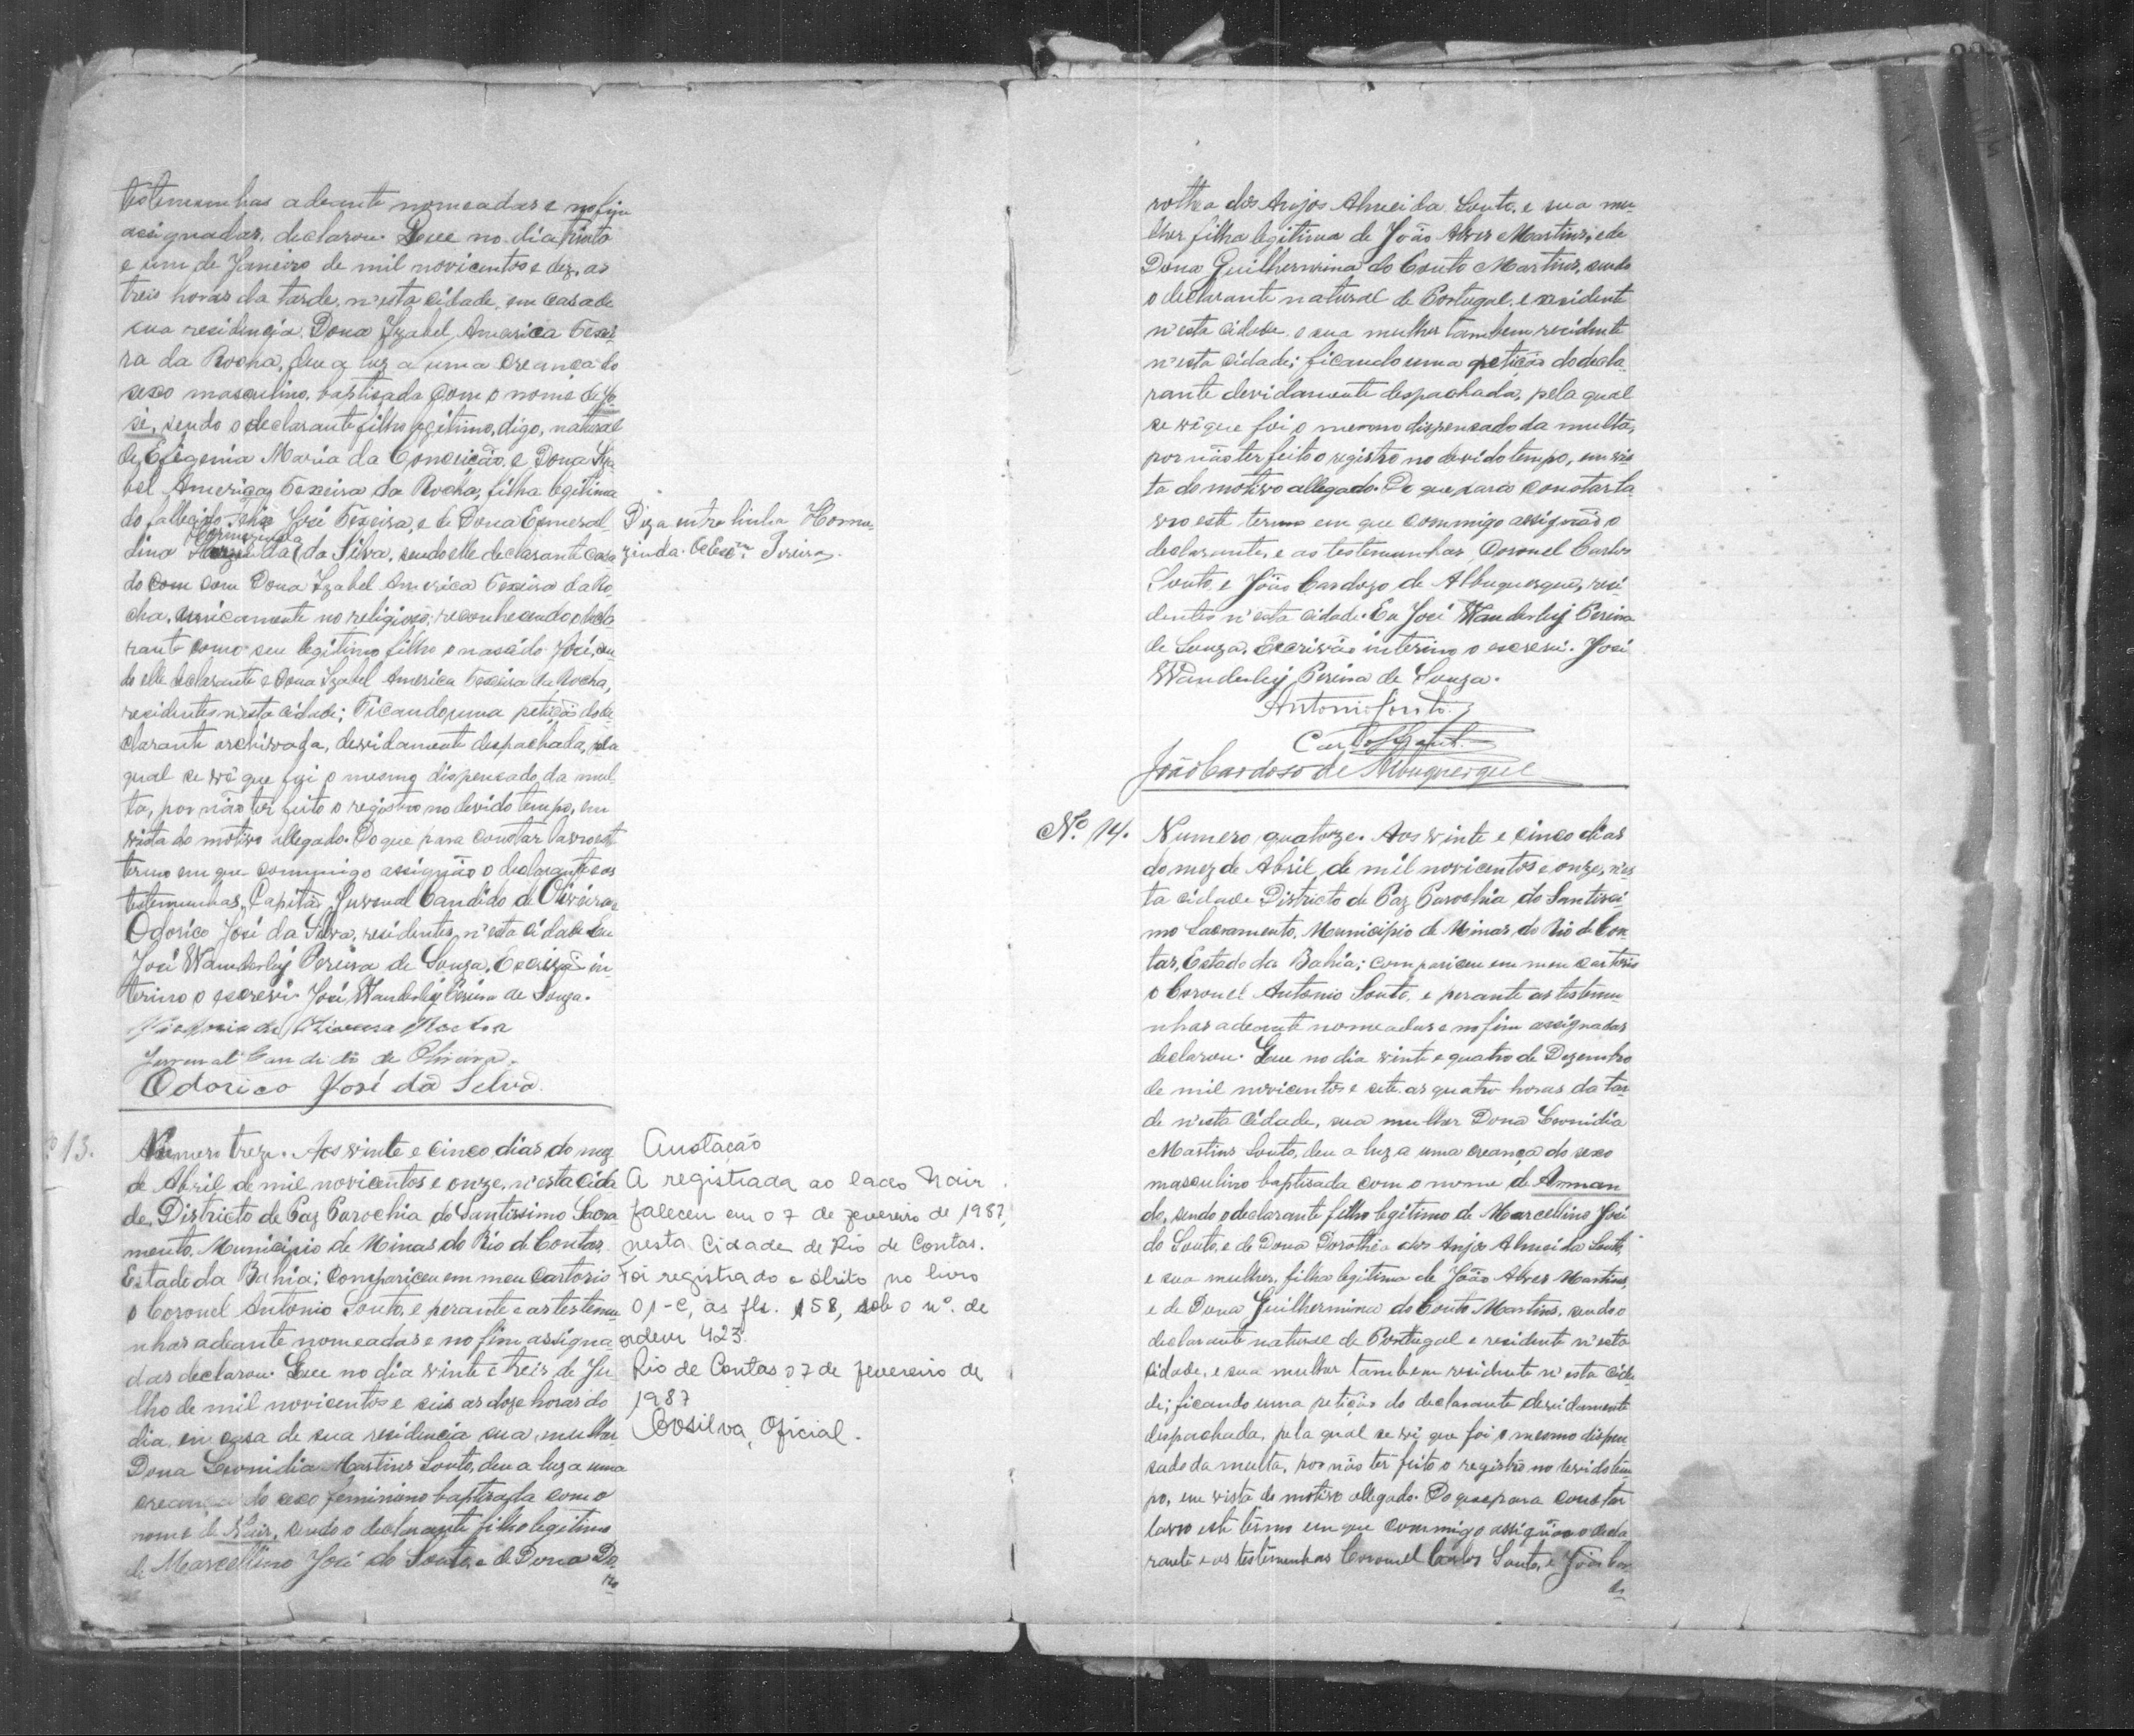 testemunhas adeante nomeadas e no fim
assignadas, declarou. Que no dia trinta
e um de Janeiro de mil novicentos e dez, as
treis horas da tarde, n'esta cidade, em casa de
sua residencia, Dona Izabel America Texei-
ra da Rocha, deu a luz a uma creança do
sexo masculino, baptisada com o nome de Jo-
sé, sendo o declarante filho legitimo, digo, natural
de Efigenia Maria da Conceição, e Dona Iza-
bel America Texeira da Rocha, filha legitima
do fallecido José Texeira, e de Dona Esmeral-
Hormezinda
dina da Silva, sendo elle declarante casa-
do com com Dona Izabel America Texeira da Ro-
cha, unicamente no religioso; reconhecendo o decla-
rante como seu legitimo filho o nascido José, sen-
do elle declarante e Dona Izabel America Texeira da Rocha,
residentes n'esta cidade; Ficando uma petição do de-
clarante archivada, devidamente despachada, pela
qual se vê que foi o mesmo dispensado da mul-
ta, por não ter feito o registro no devido tempo, em
vista do motivo allegado. Do que para constar lavro este
termo em que commigo assignão o declarante e as
testemunhas, Capitão Juvenal Candido de Oliveira e
Odorico José da Silva, residentes n'esta cidade. Eu
José Wanderley Pereira de Souza, Escrivão in-
terino o escrevi. José Wanderley Pereira de Souza.
Rocha
Juvenal Candido de Oliveira.
Odorico José da Silva.
Diga entre linha Horme-
zinda. O Escm Pereira.
13.
Numero treze. Aos vinte e cinco dias do mez
de Abril de mil novicentos e onze, n'esta cida-
de, Districto de Paz Parochia do Santissimo Sacra-
mento, Municipio de Minas do Rio de Contas,
Estado da Bahia; compariceu em meu cartorio
o Coronel Antonio Souto, e perante e as testemu-
nhas adeante nomeadas e no fim assigna-
das declarou. Que no dia vinte e treis de Ju-
lho de mil novicentos e seis as doze horas do
dia, em casa de sua residencia sua mulher
Dona Leonidia Martins Souto, deu a luz a uma
creança do sexo feminino baptisada com o
nome de Nair, sendo o declarante filho legitimo
de Marcellino José do Souto, e de Dona Do-
ro
Anotação
A registrada ao lado Nair
faleceu em 07 de fevereiro de 1987,
nesta Cidade de Rio de Contas.
Foi registrado o óbito no livro
01-C, às fls. 158, sob o nº. de
ordem 423.
Rio de Contas 07 de fevereiro de
1987
Oficial.
rothea dos Anjos Almeida Souto, e sua mu-
lher filha legitima de João Alves Martins, e de
Dona Guilhermina do Couto Martins, sendo
o declarante natural de Portugal, e residente
n'esta cidade, e sua mulher tambem residente
n'esta cidade; ficando uma petição do decla-
rante devidamente despachada, pela qual
se vê que foi o mesmo dispensado da multa,
por não ter feito o registro no devido tempo, em vis-
ta do motivo allegado. Do que para constar la-
vro este termo em que commigo assignão o
declarante, e as testemunhas, Coronel Carlos
Souto, e João Cardozo de Albuquerque, resi-
dentes n'esta cidade. Eu José Wanderley Pereira
de Souza, Escrivão interino o escrevi. José
Wanderley Pereira de Souza.
Antonio Souto
Carlos Souto
João Cardoso de Albuquerque
Nº. 14.
Numero quatorze. Aos vinte e cinco dias
do mez de Abril de mil novicentos e onze, n'es-
ta cidade Districto de Paz Parochia do Santissi-
mo Sacramento, Municipio de Minas do Rio de Con-
tas, Estado da Bahia; compariceu em meu cartorio
o Coronel Antonio Souto, e perante as testemu-
nhas adeante nomeadas e no fim assignadas
declarou. Que no dia vinte e quatro de Dezembro
de mil novicentos e sete as quatro horas da tar-
de n'esta cidade, sua mulher Dona Leonidia
Martins Souto, deu a luz a uma creança do sexo
masculino baptisada com o nome de Arman-
do, sendo o declarante filho legitimo de Marcellino José
do Souto, e de Dona Dorothea dos Anjos Almeida Souto,
e sua mulher, filha legitima de João Alves Martins,
e de Dona Guilhermina do Couto Martins, sendo o
declarante natural de Portugal e residente n'esta
cidade, e sua mulher tambem residente n'esta cida-
de; ficando uma petição do declarante devidamente
despachada, pela qual se vê que foi o mesmo dispen-
sado da multa, por não ter feito o registro no devido tem-
po, em vista do motivo allegado. Do que para constar
lavro este termo em que commigo assignão o decla-
rante e as testemunhas Coronel Carlos Souto, e João Car-
do